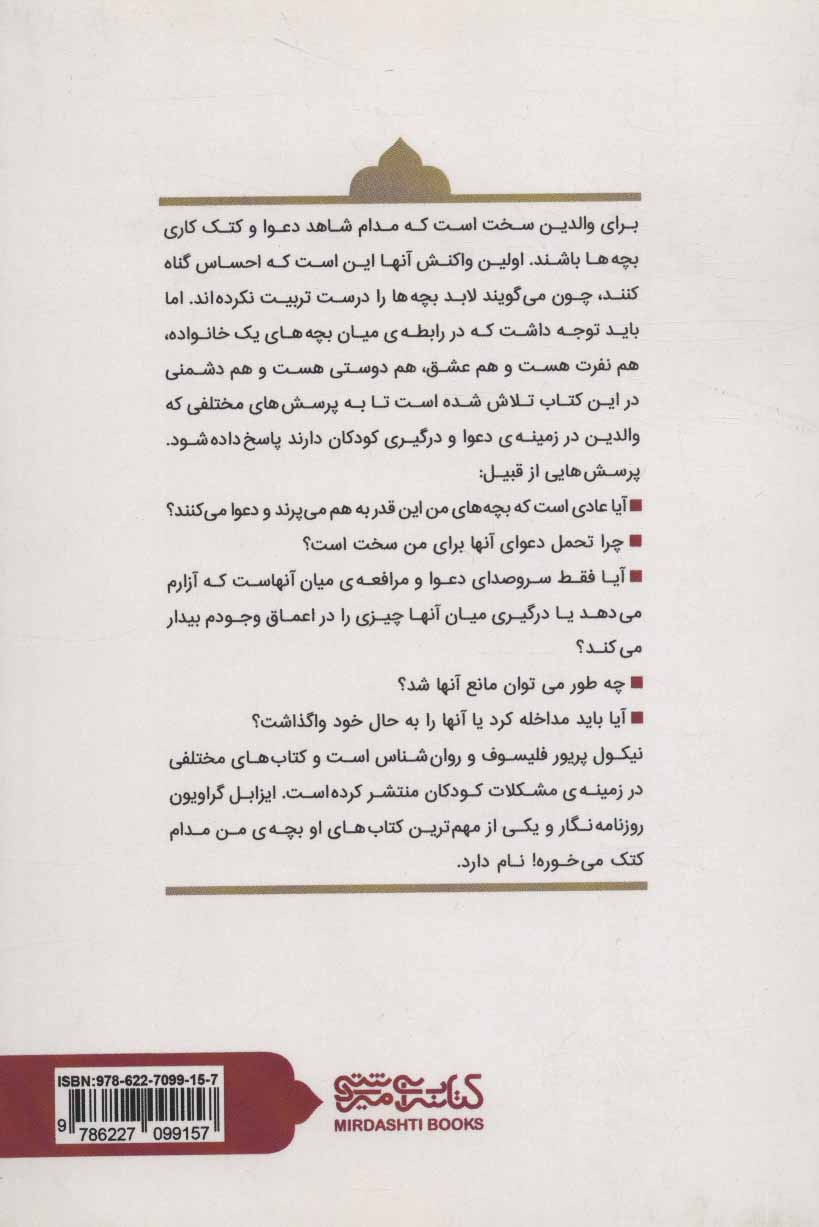 برای والدین سخت است که مدام شاهد دعوا و کتک کاری
بچه‌ها باشند. اولین واکنش آنها این است که احساس گناه
کنند، چون می‌گویند لابد بچه‌ها را درست تربیت نکرده‌اند. اما
باید توجه داشت که در رابطه‌ی میان بچه‌های یک خانواده،
هم نفرت هست و هم عشق، هم دوستی هست و هم دشمنی
در این کتاب تلاش شده است تا به پرسش‌های مختلفی که
والدین در زمینه‌ی دعوا و درگیری کودکان دارند پاسخ داده شود.
پرسش‌هایی از قبیل:
■ آیا عادی است که بچه‌های من این قدر به هم می‌پرند و دعوا می‌کنند؟
■ چرا تحمل دعوای آنها برای من سخت است؟
■ آیا فقط سروصدای دعوا و مرافعه‌ی میان آنهاست که آزارم
می‌دهد یا درگیری میان آنها چیزی را در اعماق وجودم بیدار
می‌کند؟
■ چه طور می توان مانع آنها شد؟
■ آیا باید مداخله کرد یا آنها را به حال خود واگذاشت؟
نیکول پریور فلیسوف و روان‌شناس است و کتاب‌های مختلفی
در زمینه‌ی مشکلات کودکان منتشر کرده‌است. ایزابل گراویون
روزنامه‌نگار و یکی از مهم‌ترین کتاب‌های او بچه‌ی من مدام
کتک می‌خوره! نام دارد.
کتابسرای میردشتی
MIRDASHTI BOOKS
ISBN:978-622-7099-15-7
9 786227 099157